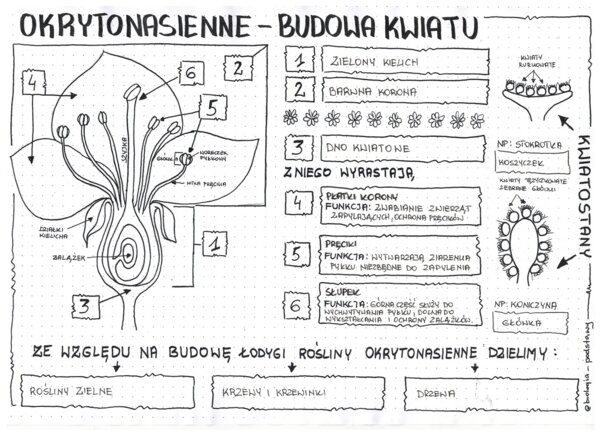 OKRYTONASIENNE – BUDOWA KWIATU
4
6
2
5
SZYJKA
GŁÓWKA
WORECZEK
PYŁKOWY
NITKA PRĘCIKA
DZIAŁKI
KIELICHA
ZALĄŻEK
1
3
1 ZIELONY KIELICH
2 BARWNA KORONA
3 DNO KWIATOWE
Z NIEGO WYRASTAJĄ
4 PŁATKI KORONY
FUNKCJA: ZWABIANIE ZWIERZĄT
ZAPYLAJĄCYCH, OCHRONA PRĘCIKÓW
5 PRĘCIKI
FUNKCJA: WYTWARZAJĄ ZIARENKA
PYŁKU NIEZBĘDNE DO ZAPYLENIA
6 SŁUPEK
FUNKCJA: GÓRNA CZĘŚĆ SŁUŻY DO
WYCHWYTYWANIA PYŁKU, DOLNA DO
WYKSZTAŁCANIA I OCHRONY ZALĄŻKÓW.
KWIATY
RURKOWATE
NP: STOKROTKA
KOSZYCZEK
KWIATY JĘZYCZKOWATE
ZEBRANE GŁÓWKI
NP: KONICZYNA
GŁÓWKA
KWIATOSTANY
ZE WZGLĘDU NA BUDOWĘ ŁODYGI ROŚLINY OKRYTONASIENNE DZIELIMY:
ROŚLINY ZIELNE
KRZEWY I KRZEWINKI
DRZEWA
@biologia_podstawy